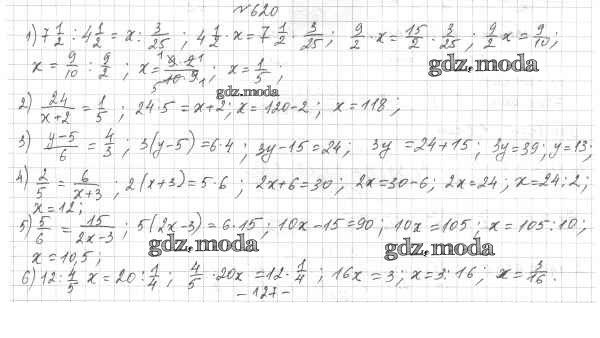 №620
1) 7 1/2 : 4 1/2 = x : 3/25 ; 4 1/2 · x = 7 1/2 · 3/25 ; 9/2 · x = 15/2 · 3/25 ; 9/2 x = 9/10 ;
x = 9/10 : 9/2 ; x = ¹9·2¹/₅10·9₁ ; x = 1/5 ; gdz.moda
gdz.moda
2) 24/x+2 = 1/5 ; 24·5 = x+2 ; x = 120-2 ; x = 118 ;
3) y-5/6 = 4/3 ; 3(y-5) = 6·4 ; 3y-15 = 24 ; 3y = 24+15 ; 3y = 39 ; y = 13 ;
4) 2/5 = 6/x+3 ; 2(x+3) = 5·6 ; 2x+6 = 30 ; 2x = 30-6 ; 2x = 24 ; x = 24:2 ;
x = 12 ;
5) 5/6 = 15/2x-3 ; 5(2x-3) = 6·15 ; 10x-15 = 90 ; 10x = 105 ; x = 105:10 ;
gdz.moda gdz.moda
x = 10,5 ;
6) 12 : 4/5 x = 20 : 1/4 ; 4/5 · 20x = 12 · 1/4 ; 16x = 3 ; x = 3:16 ; x = 3/16 .
- 127 -